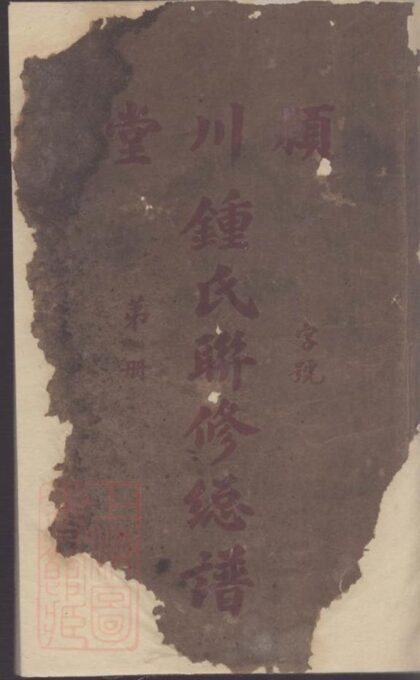 潁川堂
字號
鍾氏聯修總譜
第 冊